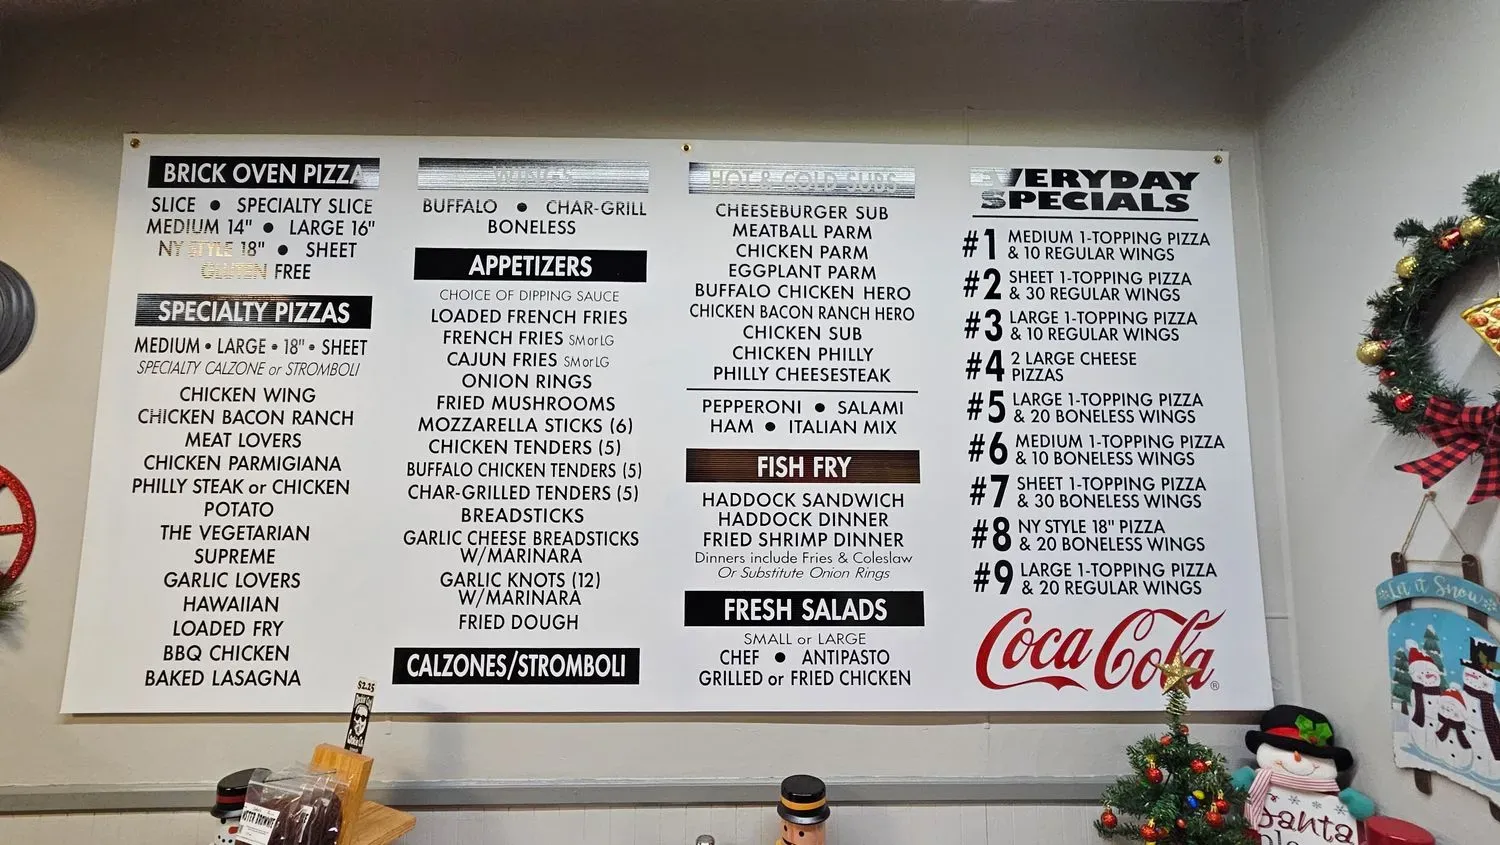 BRICK OVEN PIZZA
SLICE • SPECIALTY SLICE
MEDIUM 14" • LARGE 16"
NY STYLE 18" • SHEET
GLUTEN FREE
SPECIALTY PIZZAS
MEDIUM • LARGE • 18" • SHEET
SPECIALTY CALZONE or STROMBOLI
CHICKEN WING
CHICKEN BACON RANCH
MEAT LOVERS
CHICKEN PARMIGIANA
PHILLY STEAK or CHICKEN
POTATO
THE VEGETARIAN
SUPREME
GARLIC LOVERS
HAWAIIAN
LOADED FRY
BBQ CHICKEN
BAKED LASAGNA
WINGS
BUFFALO • CHAR-GRILL
BONELESS
APPETIZERS
CHOICE OF DIPPING SAUCE
LOADED FRENCH FRIES
FRENCH FRIES SM or LG
CAJUN FRIES SM or LG
ONION RINGS
FRIED MUSHROOMS
MOZZARELLA STICKS (6)
CHICKEN TENDERS (5)
BUFFALO CHICKEN TENDERS (5)
CHAR-GRILLED TENDERS (5)
BREADSTICKS
GARLIC CHEESE BREADSTICKS
W/MARINARA
GARLIC KNOTS (12)
W/MARINARA
FRIED DOUGH
CALZONES/STROMBOLI
HOT & COLD SUBS
CHEESEBURGER SUB
MEATBALL PARM
CHICKEN PARM
EGGPLANT PARM
BUFFALO CHICKEN HERO
CHICKEN BACON RANCH HERO
CHICKEN SUB
CHICKEN PHILLY
PHILLY CHEESESTEAK
PEPPERONI • SALAMI
HAM • ITALIAN MIX
FISH FRY
HADDOCK SANDWICH
HADDOCK DINNER
FRIED SHRIMP DINNER
Dinners include Fries & Coleslaw
Or Substitute Onion Rings
FRESH SALADS
SMALL or LARGE
CHEF • ANTIPASTO
GRILLED or FRIED CHICKEN
EVERYDAY
SPECIALS
#1 MEDIUM 1-TOPPING PIZZA
& 10 REGULAR WINGS
#2 SHEET 1-TOPPING PIZZA
& 30 REGULAR WINGS
#3 LARGE 1-TOPPING PIZZA
& 10 REGULAR WINGS
#4 2 LARGE CHEESE
PIZZAS
#5 LARGE 1-TOPPING PIZZA
& 20 BONELESS WINGS
#6 MEDIUM 1-TOPPING PIZZA
& 10 BONELESS WINGS
#7 SHEET 1-TOPPING PIZZA
& 30 BONELESS WINGS
#8 NY STYLE 18" PIZZA
& 20 BONELESS WINGS
#9 LARGE 1-TOPPING PIZZA
& 20 REGULAR WINGS
Coca Cola®
Let it Snow
$2.25
Santa